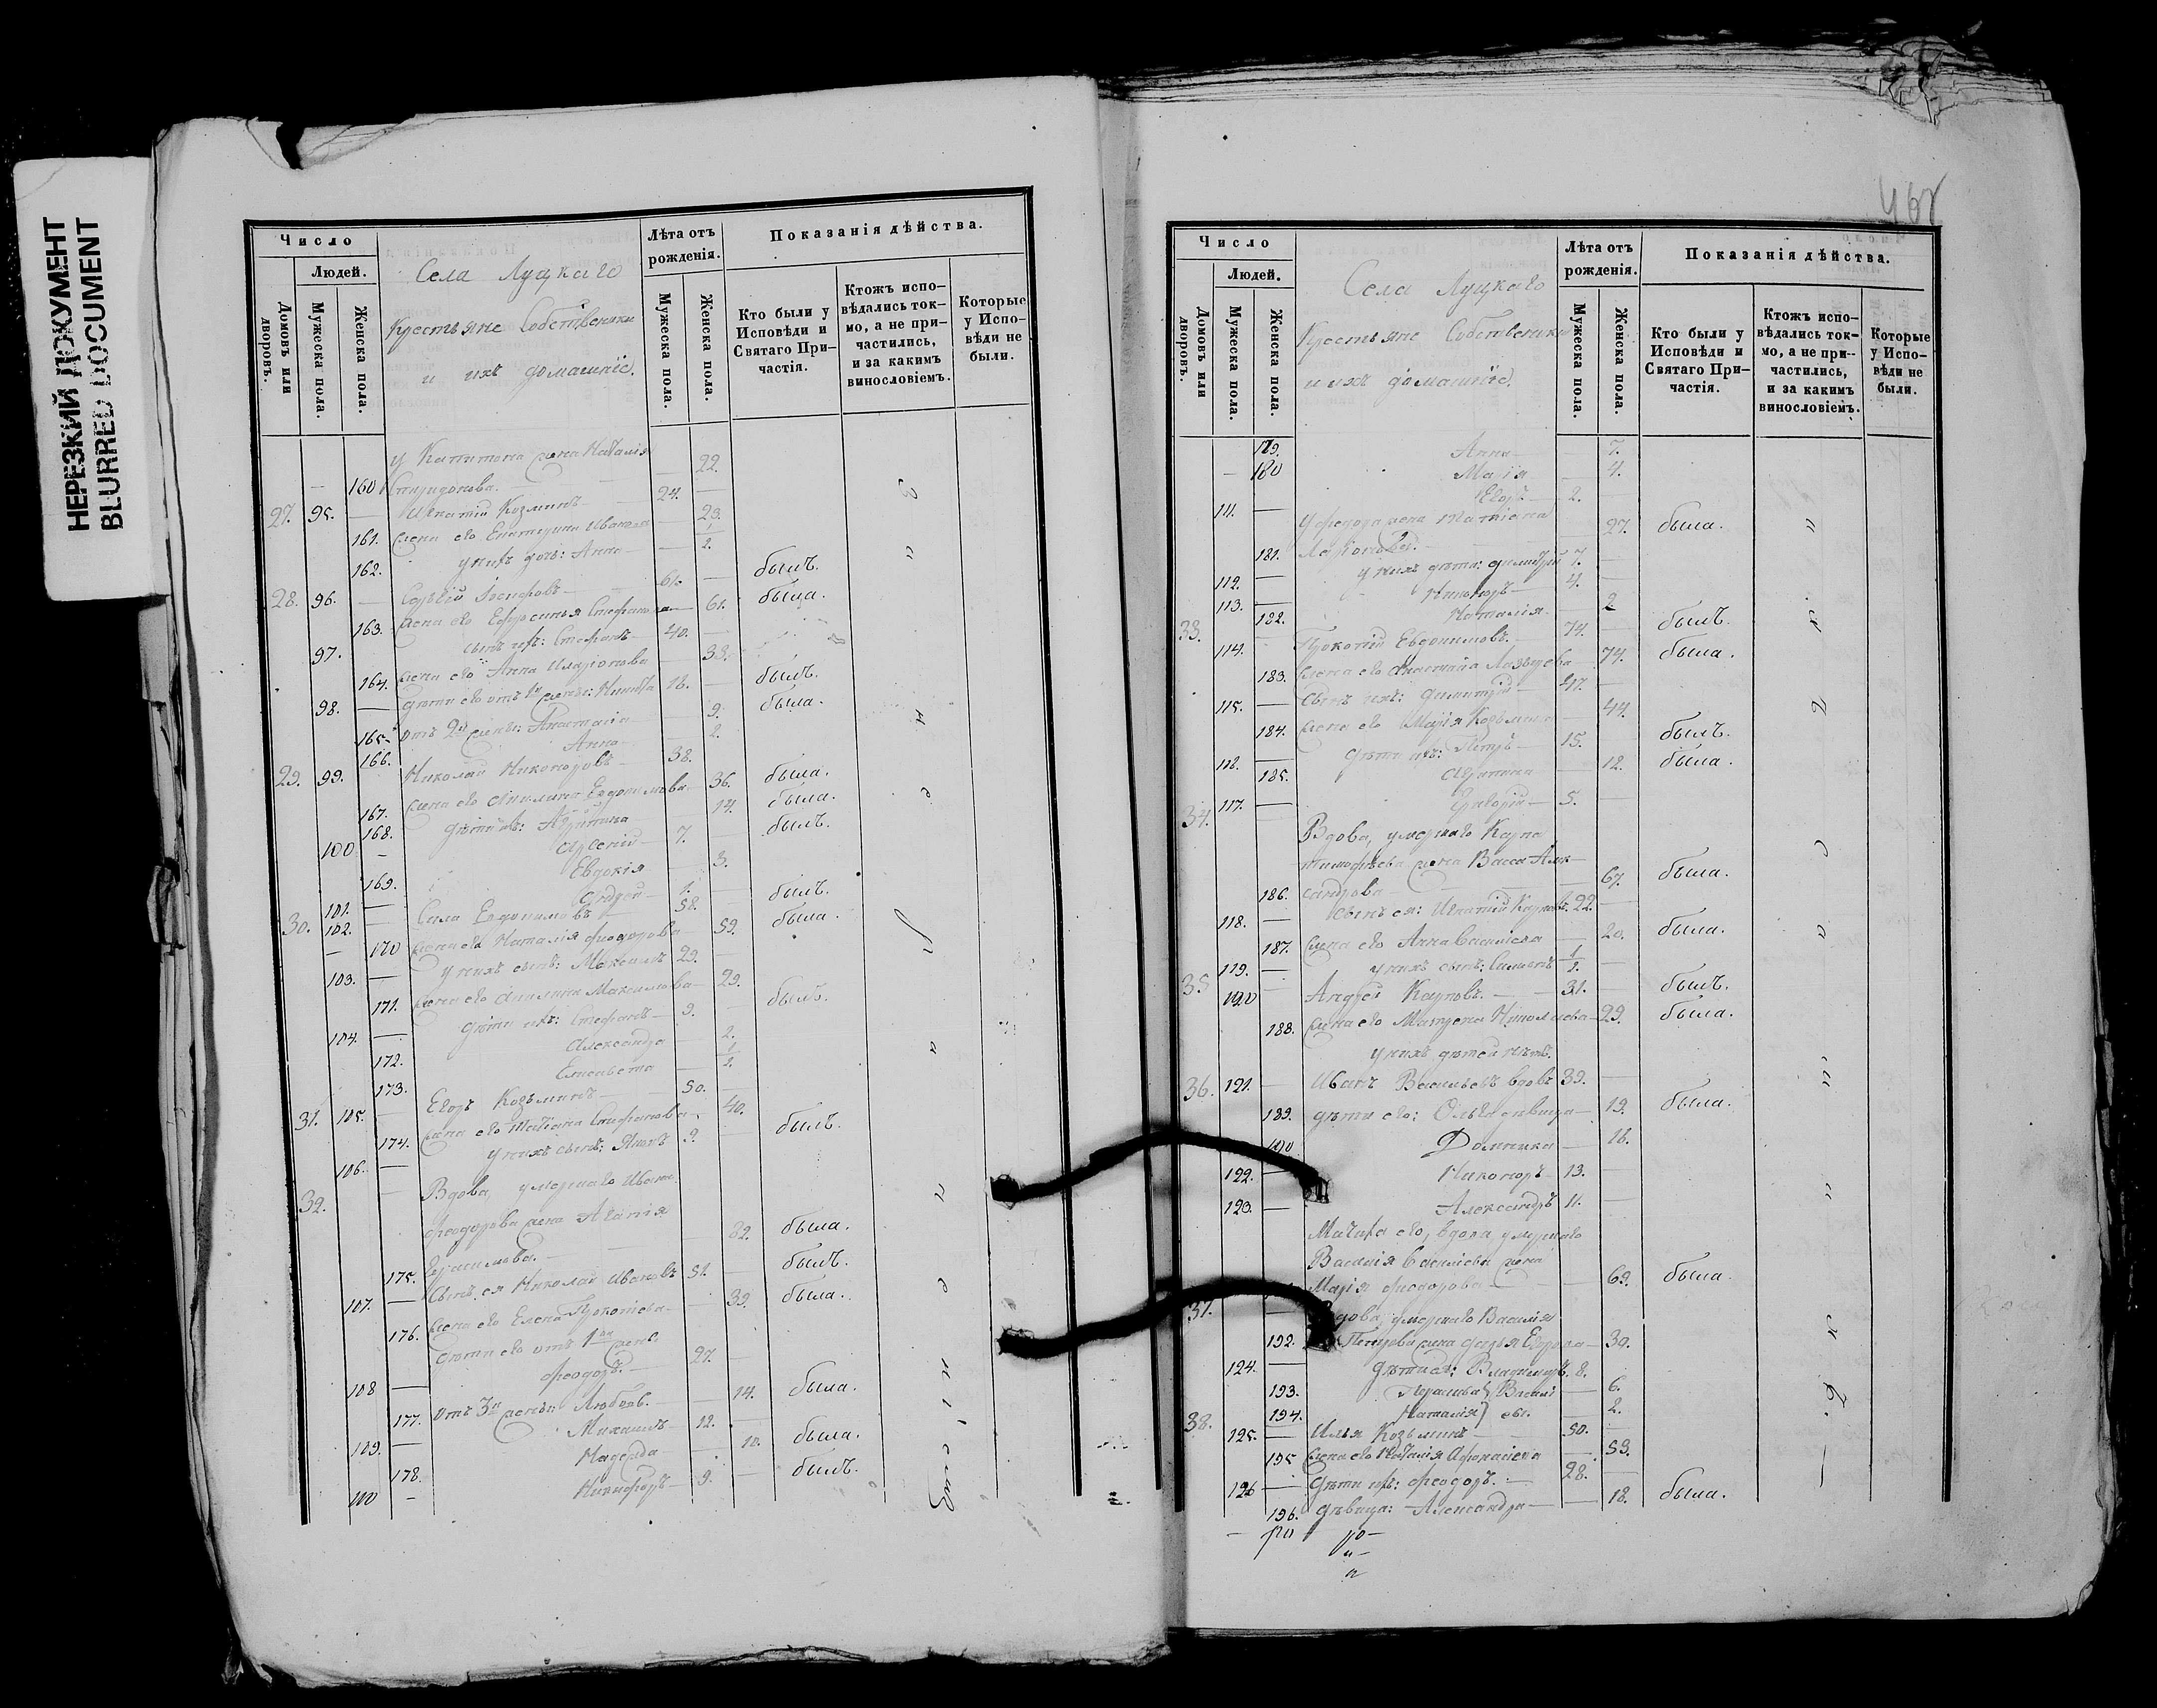 НЕРЕЗКИЙ ДОКУМЕНТ
BLURRED DOCUMENT
Число
Людей.
Домовъ или дворовъ.
Мужеска пола.
Женска пола.
Села Луцкаго
Крестьяне Собственики
и ихъ домашніе.
Лѣта отъ рожденія.
Мужеска пола.
Женска пола.
Показанія дѣйства.
Кто были у Исповѣди и Святаго Причастія.
Ктожъ исповѣдались токмо, а не причастились, и за какимъ винословіемъ.
Которые у Исповѣди не были.
У Капитона жена Наталія 22.
— 160 Спиридонова.
27. 95. — Игнатій Козминъ — 24. —
161. жена его Екатерина Иванова — 23.
162. у нихъ дочь: Анна — 1/2.
28. 96. — Сергій Іосифовъ — 61. — былъ.
163. жена его Ефросинья Стефанова — 61. была.
97. сынъ ихъ: Стефанъ — 40. —
164. жена его Анна Иларіонова — 33.
98. — дѣти его отъ 1й жены: Никита 16. — былъ.
165. отъ 2й жены: Анастасія — 9. была.
166. Анна — 2.
29. 99. Николай Никаноровъ — 38.
167. жена его Акилина Евдокимова 36. была.
168. дѣти ихъ: Агрипина 14. была.
100 — Арсеній — 7. — былъ.
169. Евдокія — 3.
101. — Андрей — 1.
30. 102. — Сила Евдокимовъ — 58. — былъ.
— 170 жена его Наталія Феодорова — 59. была.
103. — у нихъ сынъ: Максимъ 29. —
171. жена его Акилина Максимова — 29.
104. — дѣти ихъ: Стефанъ — 9. — былъ.
172. Александра — 2.
173. Елисавета — 1/2.
31. 105. — Егоръ Козьминъ — 50. —
174. жена его Татіана Стефанова — 40.
106. — у нихъ сынъ: Яковъ 9. — былъ.
32. — Вдова, умершаго Ивана
Феодорова жена Агапія
175. Герасимова. — 82. была.
107. — Сынъ ея Николай Ивановъ 51. — былъ.
176. жена его Елена Прокопіева — 39. была.
дѣти его отъ 1й жены
108 — Феодоръ. — 27. —
177. отъ 3й жены: Любовь. — 14. была.
109. — Михаилъ — 12. —
178. Надежда — 10. была.
110 — Никифоръ — 9. — былъ.
468
Число
Людей.
Домовъ или дворовъ.
Мужеска пола.
Женска пола.
Села Луцкаго
Крестьяне Собственики
и ихъ домашніе.
Лѣта отъ рожденія.
Мужеска пола.
Женска пола.
Показанія дѣйства.
Кто были у Исповѣди и Святаго Причастія.
Ктожъ исповѣдались токмо, а не причастились, и за какимъ винословіемъ.
Которые у Исповѣди не были.
179. Анна — 7.
— 180 Марія — 4.
111. Егоръ — 2.
У Феодора жена Татіана
181. Ларіонова. — 27. была.
112. — у нихъ дѣти: Димитрій 7.
113. — Никаноръ — 4.
182. Наталія. — 2
33. 114. Прокопій Евдокимовъ. — 74. былъ.
183. жена его Анастасія Лазарева 74. была.
115. — Сынъ ихъ: Димитрій — 47. —
184. жена его Марія Козьмина 44.
116. — дѣти ихъ: Петръ — 15. былъ.
185. Агрипина — 12. была.
117. — Григорій — 5. —
34. Вдова, умершаго Карпа
Тимофѣева жена Васса Алек-
186. сандрова — 67. была.
118. — сынъ ея: Игнатій Карповъ. 22. —
187. жена его Анна Васильева — 20. была.
119. — у нихъ сынъ: Симеонъ 1/2. —
35 120 Андрей Карповъ. — 31. — былъ.
188. жена его Матрена Николаева — 29. была.
у нихъ дѣтей нѣтъ.
36. 121. — Иванъ Васильевъ вдовъ 39. —
189. дѣти его: Ольга дѣвица — 19. была.
190 Домника — 16.
122. — Никаноръ — 13. —
123. — Александръ 11. —
Мачиха его, вдова умершаго
Василія Васильева жена
Марія Феодорова — 69. была.
37. Вдова, умершаго Василія
192. Петрова жена Дарья Егорова — 30.
124. — дѣти ея: Владимиръ. 8.
193. Параскева } Василі — 6.
194. Наталія } евы. — 2.
38. 125. — Илья Козьминъ — 50. —
195 жена его Наталія Афонасіева — 53.
126 — дѣти ихъ: Феодоръ. — 28. —
196. дѣвица: Александра — 18. была.